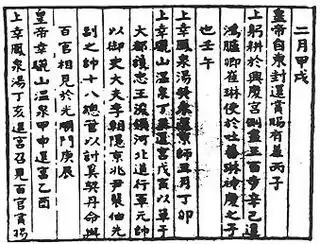 二月甲戌
皇帝自東封還賞賜有差丙子
上躬耕於興慶宮側盡三百步辛巳遣
鴻臚卿崔琳使於吐蕃琳神慶之子
也壬午
上幸鳳泉湯癸未還京師四月丁卯
上幸驪山溫泉丁丑還宮戊寅以單于
大都護忠王浚領河北道行軍元帥
以御史大夫李朝隱京兆尹裴伯先
副之帥十八總管以討奚契丹命與
百官相見於光順門庚辰
皇帝幸驪山溫泉甲申還宮乙酉
上幸鳳泉湯丁亥還宮召見百官賞賜